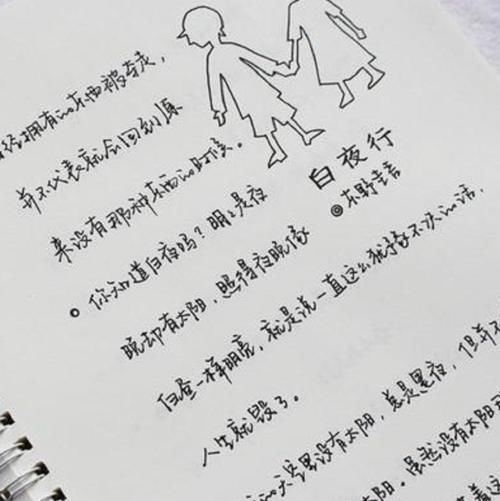 经拥有的东西被夺走，
并不代表就会回到原
来没有那种东西的时候。
白夜行
◎东野圭吾
你知道白夜吗？明明是夜
晚却有太阳，照得夜晚像
白昼一样明亮，就是说一直这么犹豫不决的话，
人生就毁了。
的天空里没有太阳，总是黑夜，但并不
虽然没有太阳